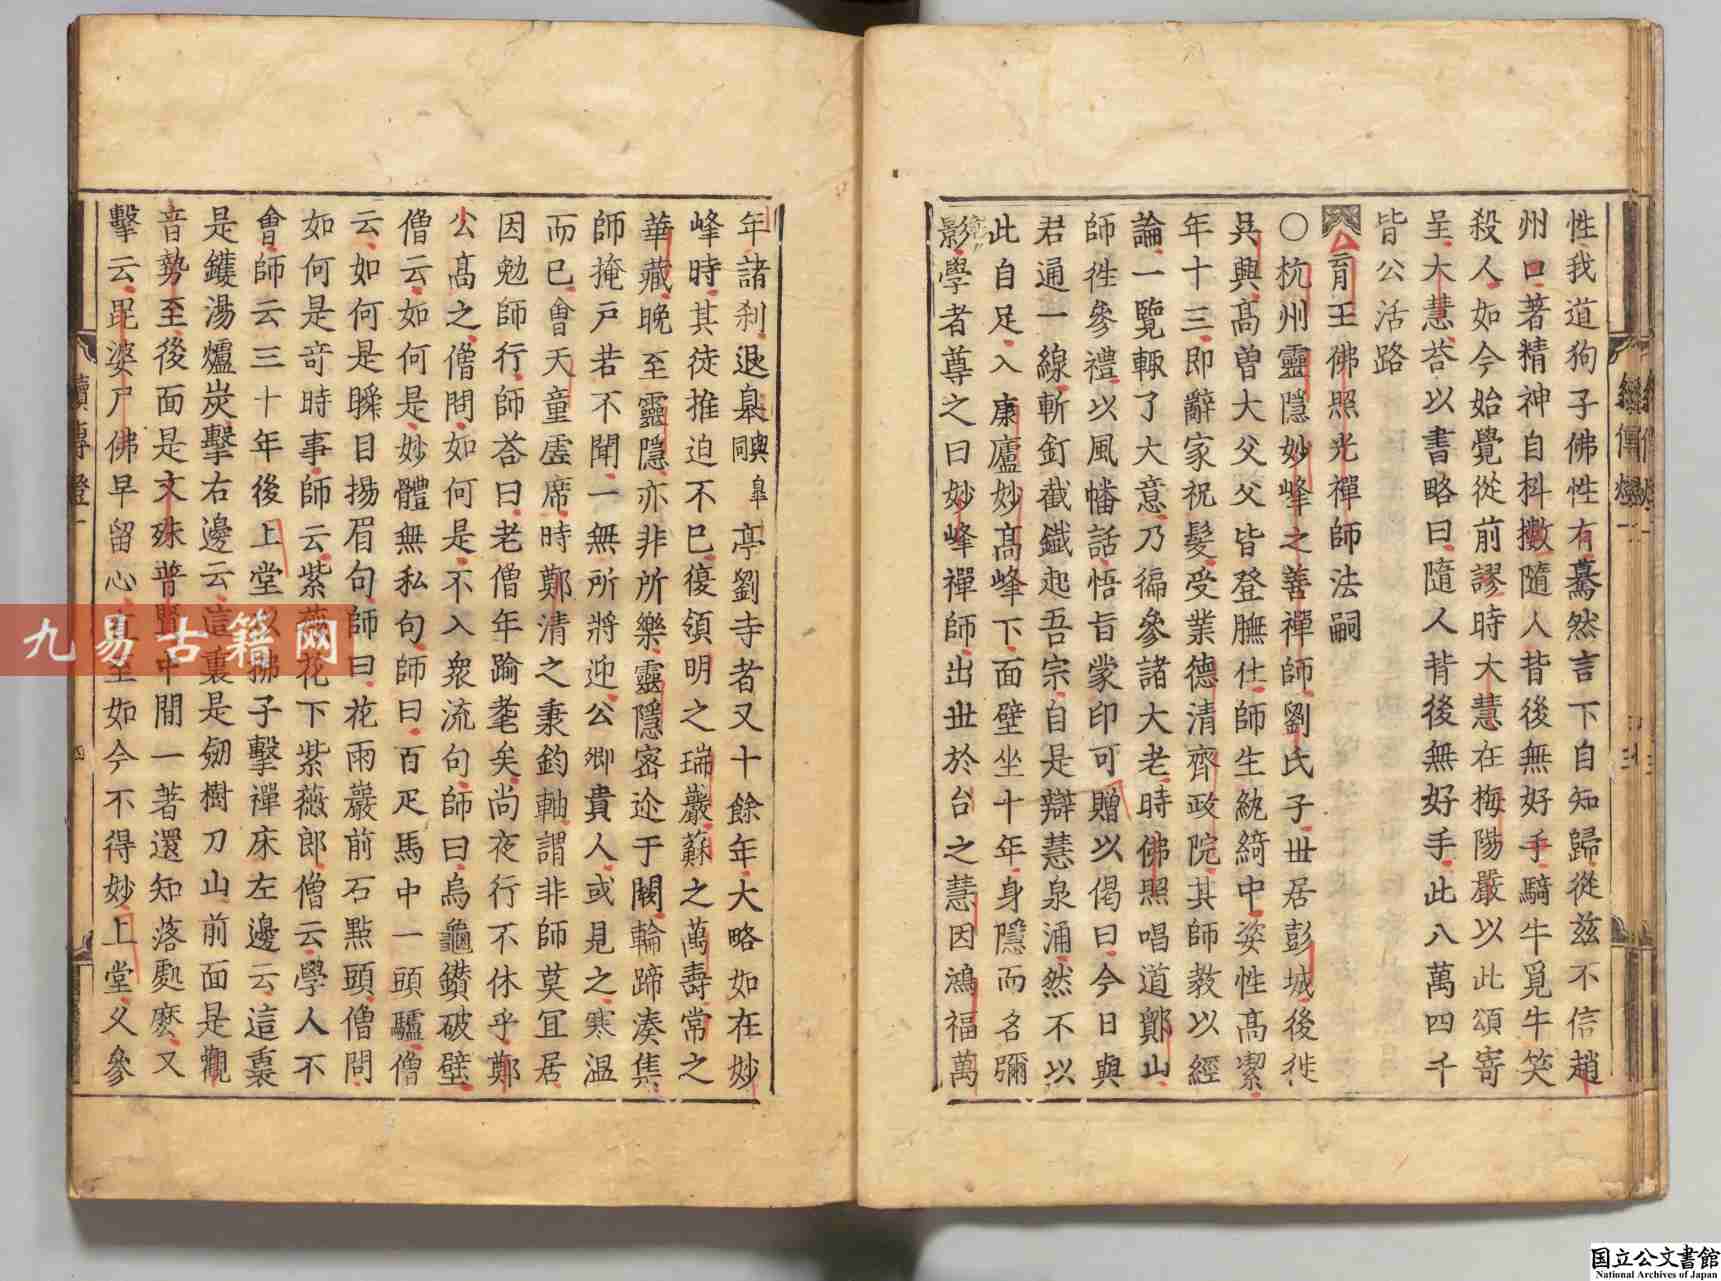 性我道狗子佛性有驀然言下自知歸從茲不信趙
州口著精神自抖擻隨人背後無好手騎牛覓牛笑
殺人如今始覺從前謬時大慧在梅陽嚴以此頌寄
呈大慧荅以書略曰隨人背後無好手此八萬四千
皆公活路
育王佛照光禪師法嗣
〇杭州靈隱妙峰之善禪師劉氏子世居彭城後徙
吳興高曾大父父皆登膴仕師生紈綺中姿性高潔
年十三即辭家祝髮受業德清齊政院其師教以經
論一覽輒了大意乃徧參諸大老時佛照唱道鄮山
師徃參禮以風幡話悟旨蒙印可贈以偈曰今日與
君通一線斬釘截鐵起吾宗自是辯慧泉涌然不以
此自足入康廬妙高峰下面壁坐十年身隱而名彌
影學者尊之曰妙峰禪師出世於台之慧因鴻福萬
年諸刹退臯與臯亭劉寺者又十餘年大略如在妙
峰時其徒推迫不已復領明之瑞巖蘇之萬壽常之
華藏晚至靈隱亦非所樂靈隱密迩于闕輪蹄湊集
師掩戶若不聞一無所將迎公卿貴人或見之寒温
而已會天童虛席時鄭清之秉鈞軸謂非師莫宜居
因勉師行師荅曰老僧年踰耄矣尚夜行不休乎鄭
公高之僧問如何是不入衆流句師曰烏龜鑽破壁
僧云如何是妙體無私句師曰百疋馬中一頭驢僧
云如何是瞬目揚眉句師曰花雨巖前石點頭僧問
如何是竒時事師云紫薇花下紫薇郎僧云學人不
會師云三十年後上堂以拂子擊禪床左邊云這裏
是鑊湯爐炭擊右邊云這裏是劒樹刀山前面是觀
音勢至後面是文殊普賢中間一著還知落䖏麽又
擊云毘婆尸佛早留心直至如今不得妙上堂乂參
續傳燈
四
九易古籍网
国立公文書館
National Archives of Japan